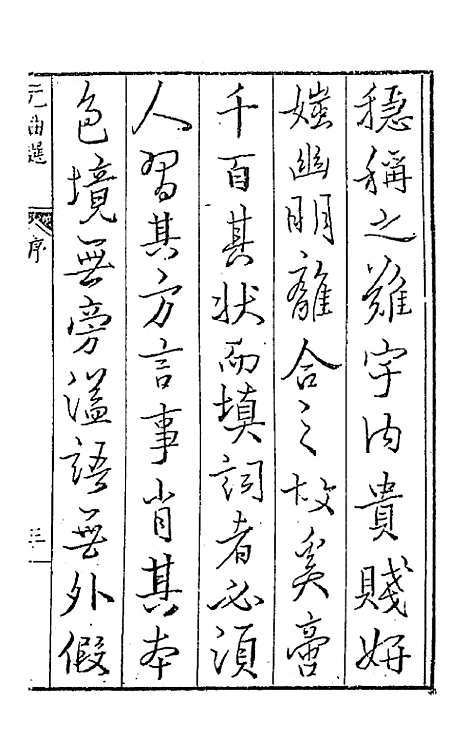 穩稱之難宇內貴賤妍
媸幽明離合之故奚啻
千百其狀而填詞者必須
人習其方言事肖其本
色境無旁溢語無外假
元曲選
序
三